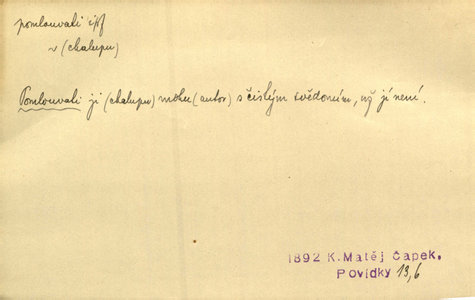 pomlouvati ipf
v (chalupu)
Pomlouvati ji (chalupu) mohu (autor) s čistým svědomím, už jí není.
1892 K. Matěj Čapek.
Povídky 13,6